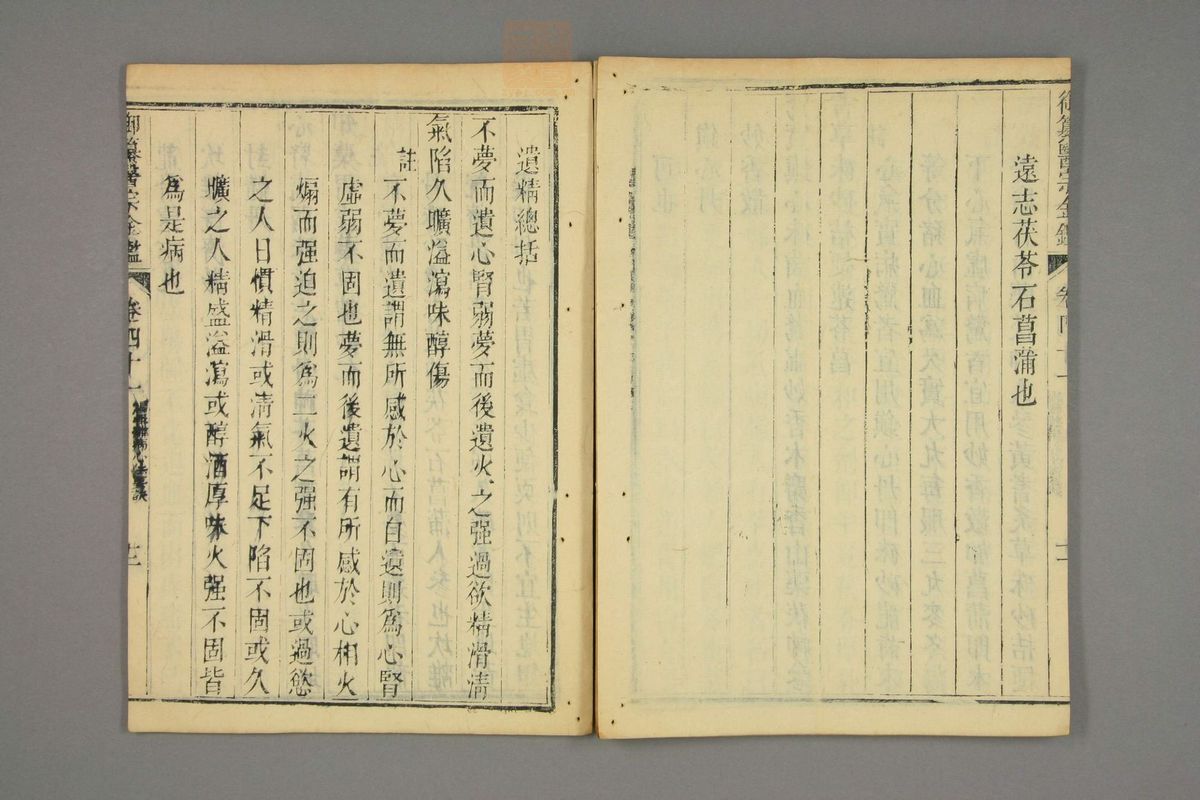 遠志茯苓石菖蒲也
遺精總括
不夢而遺心腎弱夢而後遺火之强過欲精滑淸
氣陷久曠溢瀉味醇傷
註
不夢而遺謂無所感於心而自遺則爲心腎
虛弱不固也夢而後遺謂有所感於心相火
煽而强迫之則爲二火之强不固也或過慾
之人日慣精滑或淸氣不足下陷不固或久
曠之人精盛溢瀉或醇酒厚味火强不固皆
爲是病也
御纂醫宗金鑑 卷四十一